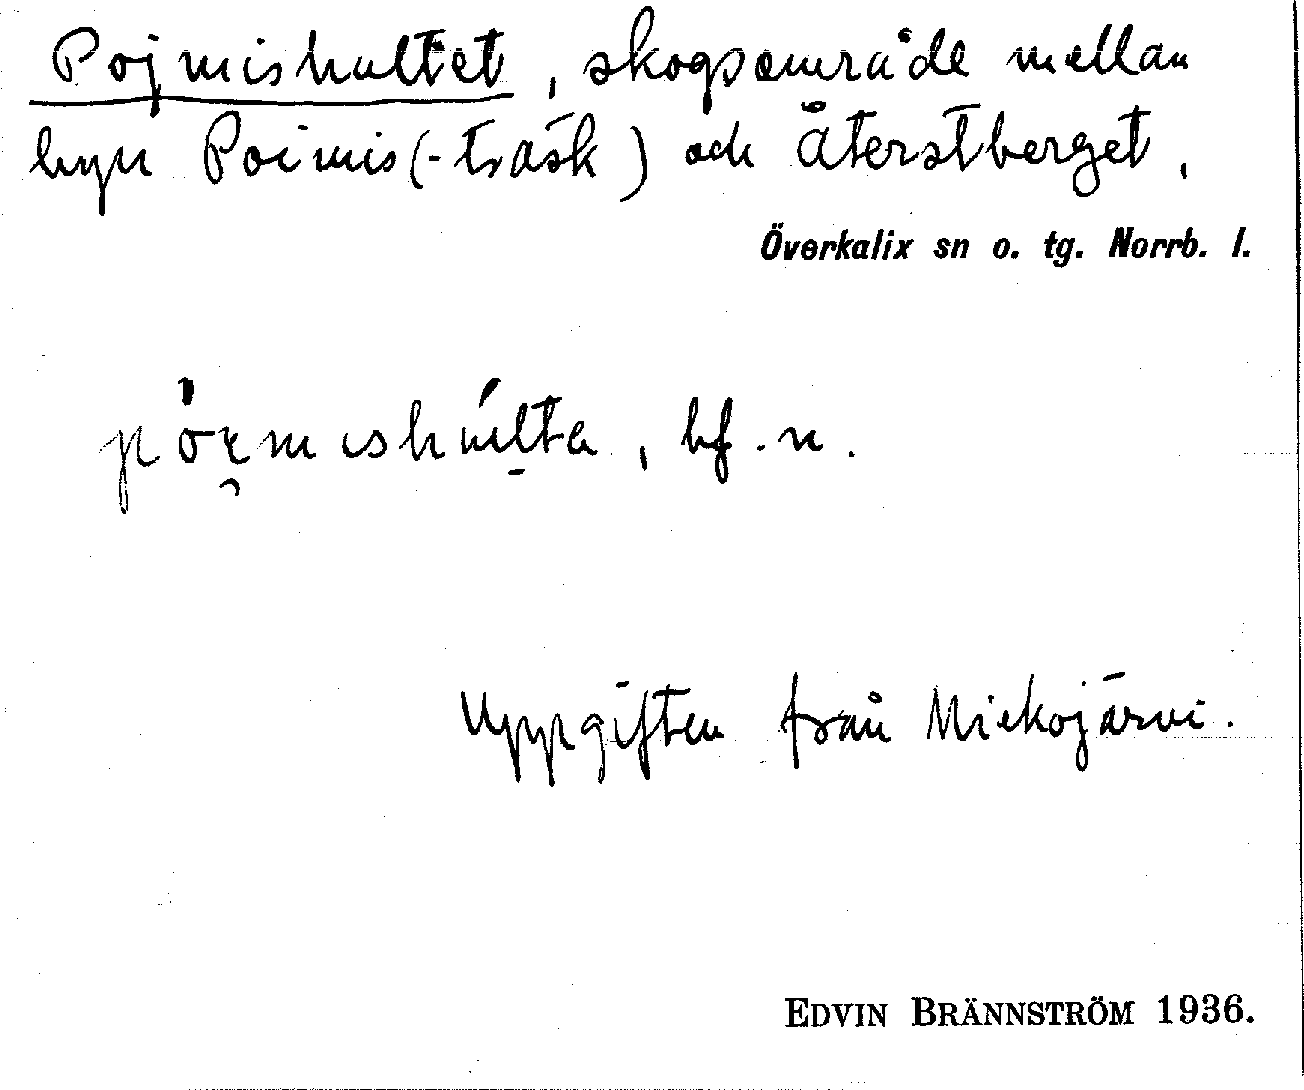 Pojmishultet, skogsområde mellan
byn Poimis(-träsk) och Återstberget,
Överkalix sn o. tg. Norrb. l.
bf. n.
Uppgiften från Miekojärvi.
EDVIN BRÄNNSTRÖM 1936.